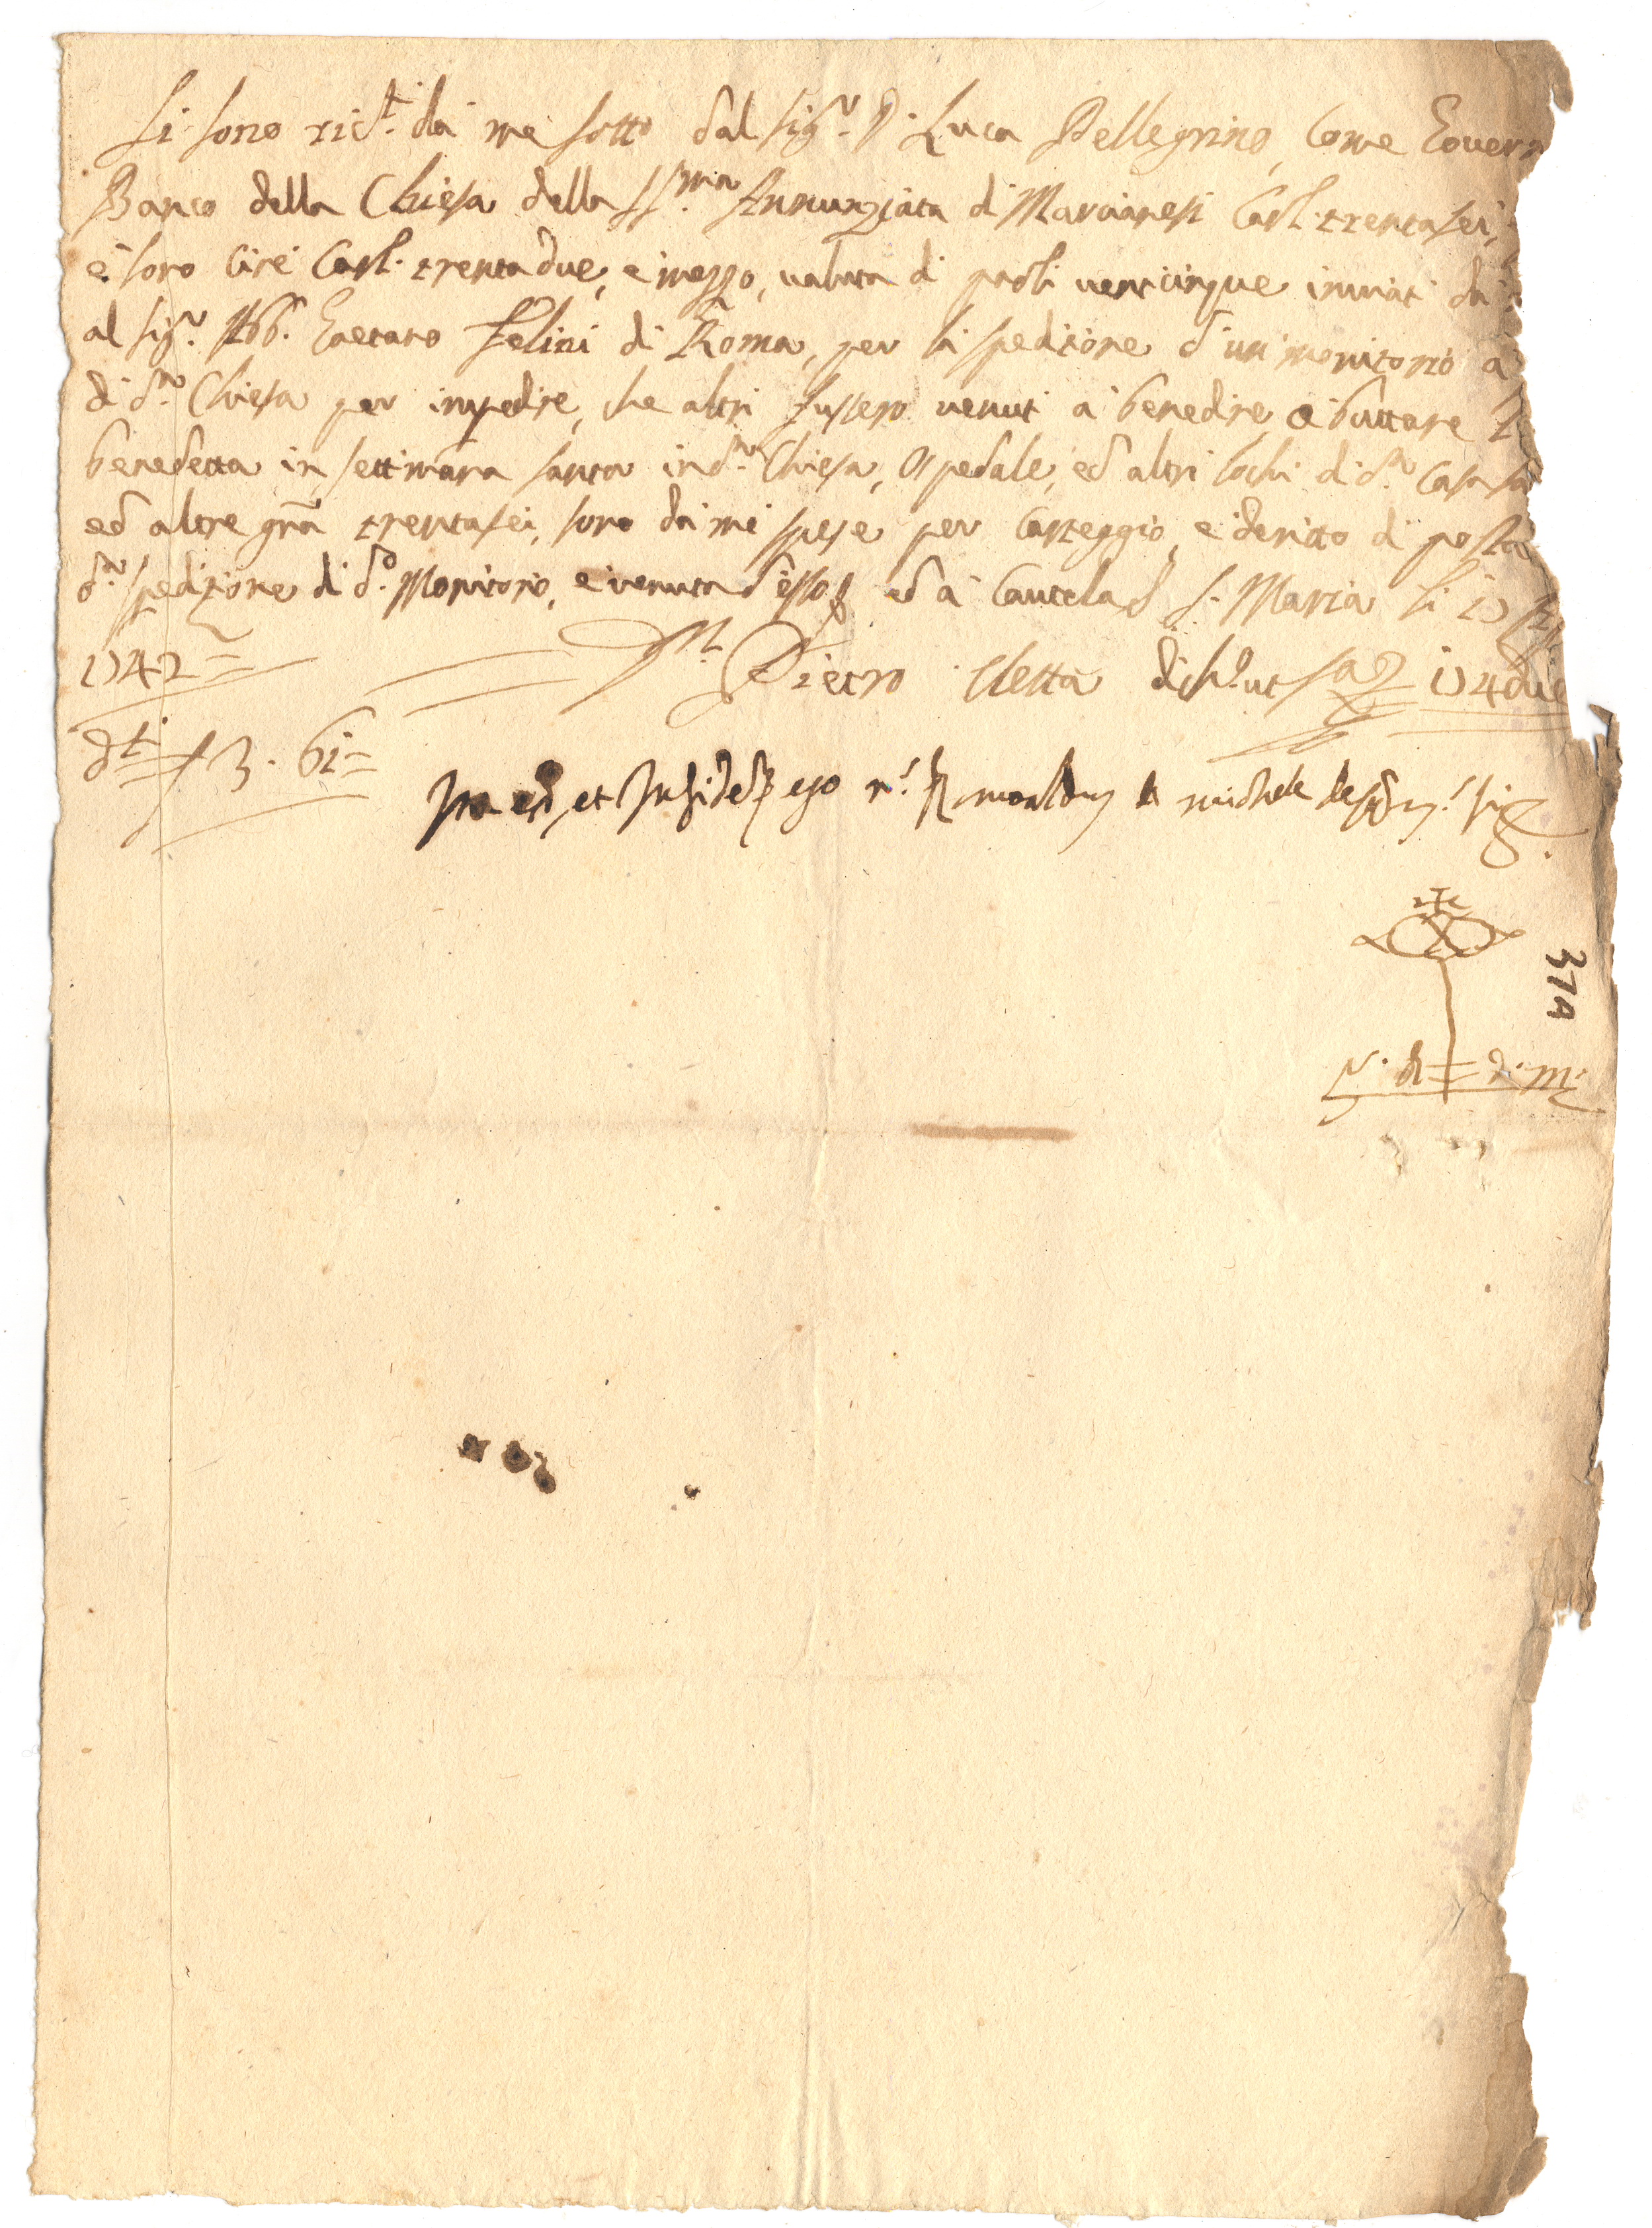 Si sono ric.ti da me sotto dal Sig.r D. Luca Pellegrino, come Govern
Banco della Chiesa della SS.ma Annunziata di Marcianesi Carl. trentasei,
e sono cioè Carl. trentadue, e mezzo, valuta di paoli venticinque inviati da
al Sig.r Abb. Gaetano Felini di Roma, per la spedizione d'un monitorio a
di d.a Chiesa per impedire, che altri fussero venuti a benedire, e buttare
benedetta in settimana santa in d.a Chiesa, Ospedale, ed altri lochi di d.a Casa
ed altre grã trentasei, sono da me spese per carteggio, e deritto di posta
d.a spedizione di d.o Monitorio, e venuta d'esso, ed a cautela S. Maria li 17
1742
Pietro Letta dich.o ut sa 174due
d.ti 3. 61
Ita est, et in fidem ego N.r Romualdus de Michele sig
37A
N. R. D. M.